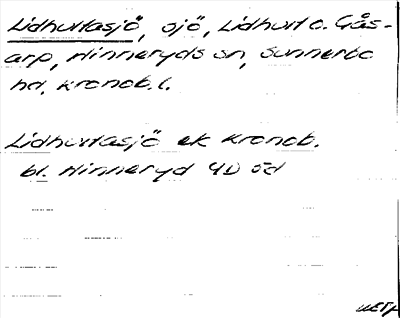 Lidhultasjö, sjö, Lidhult o. Gås-
arp, Hinneryds sn, Sunnerbo
hd, Kronob. l.
Lidhultasjö ek Kronob.
bl. Hinneryd 4D öd